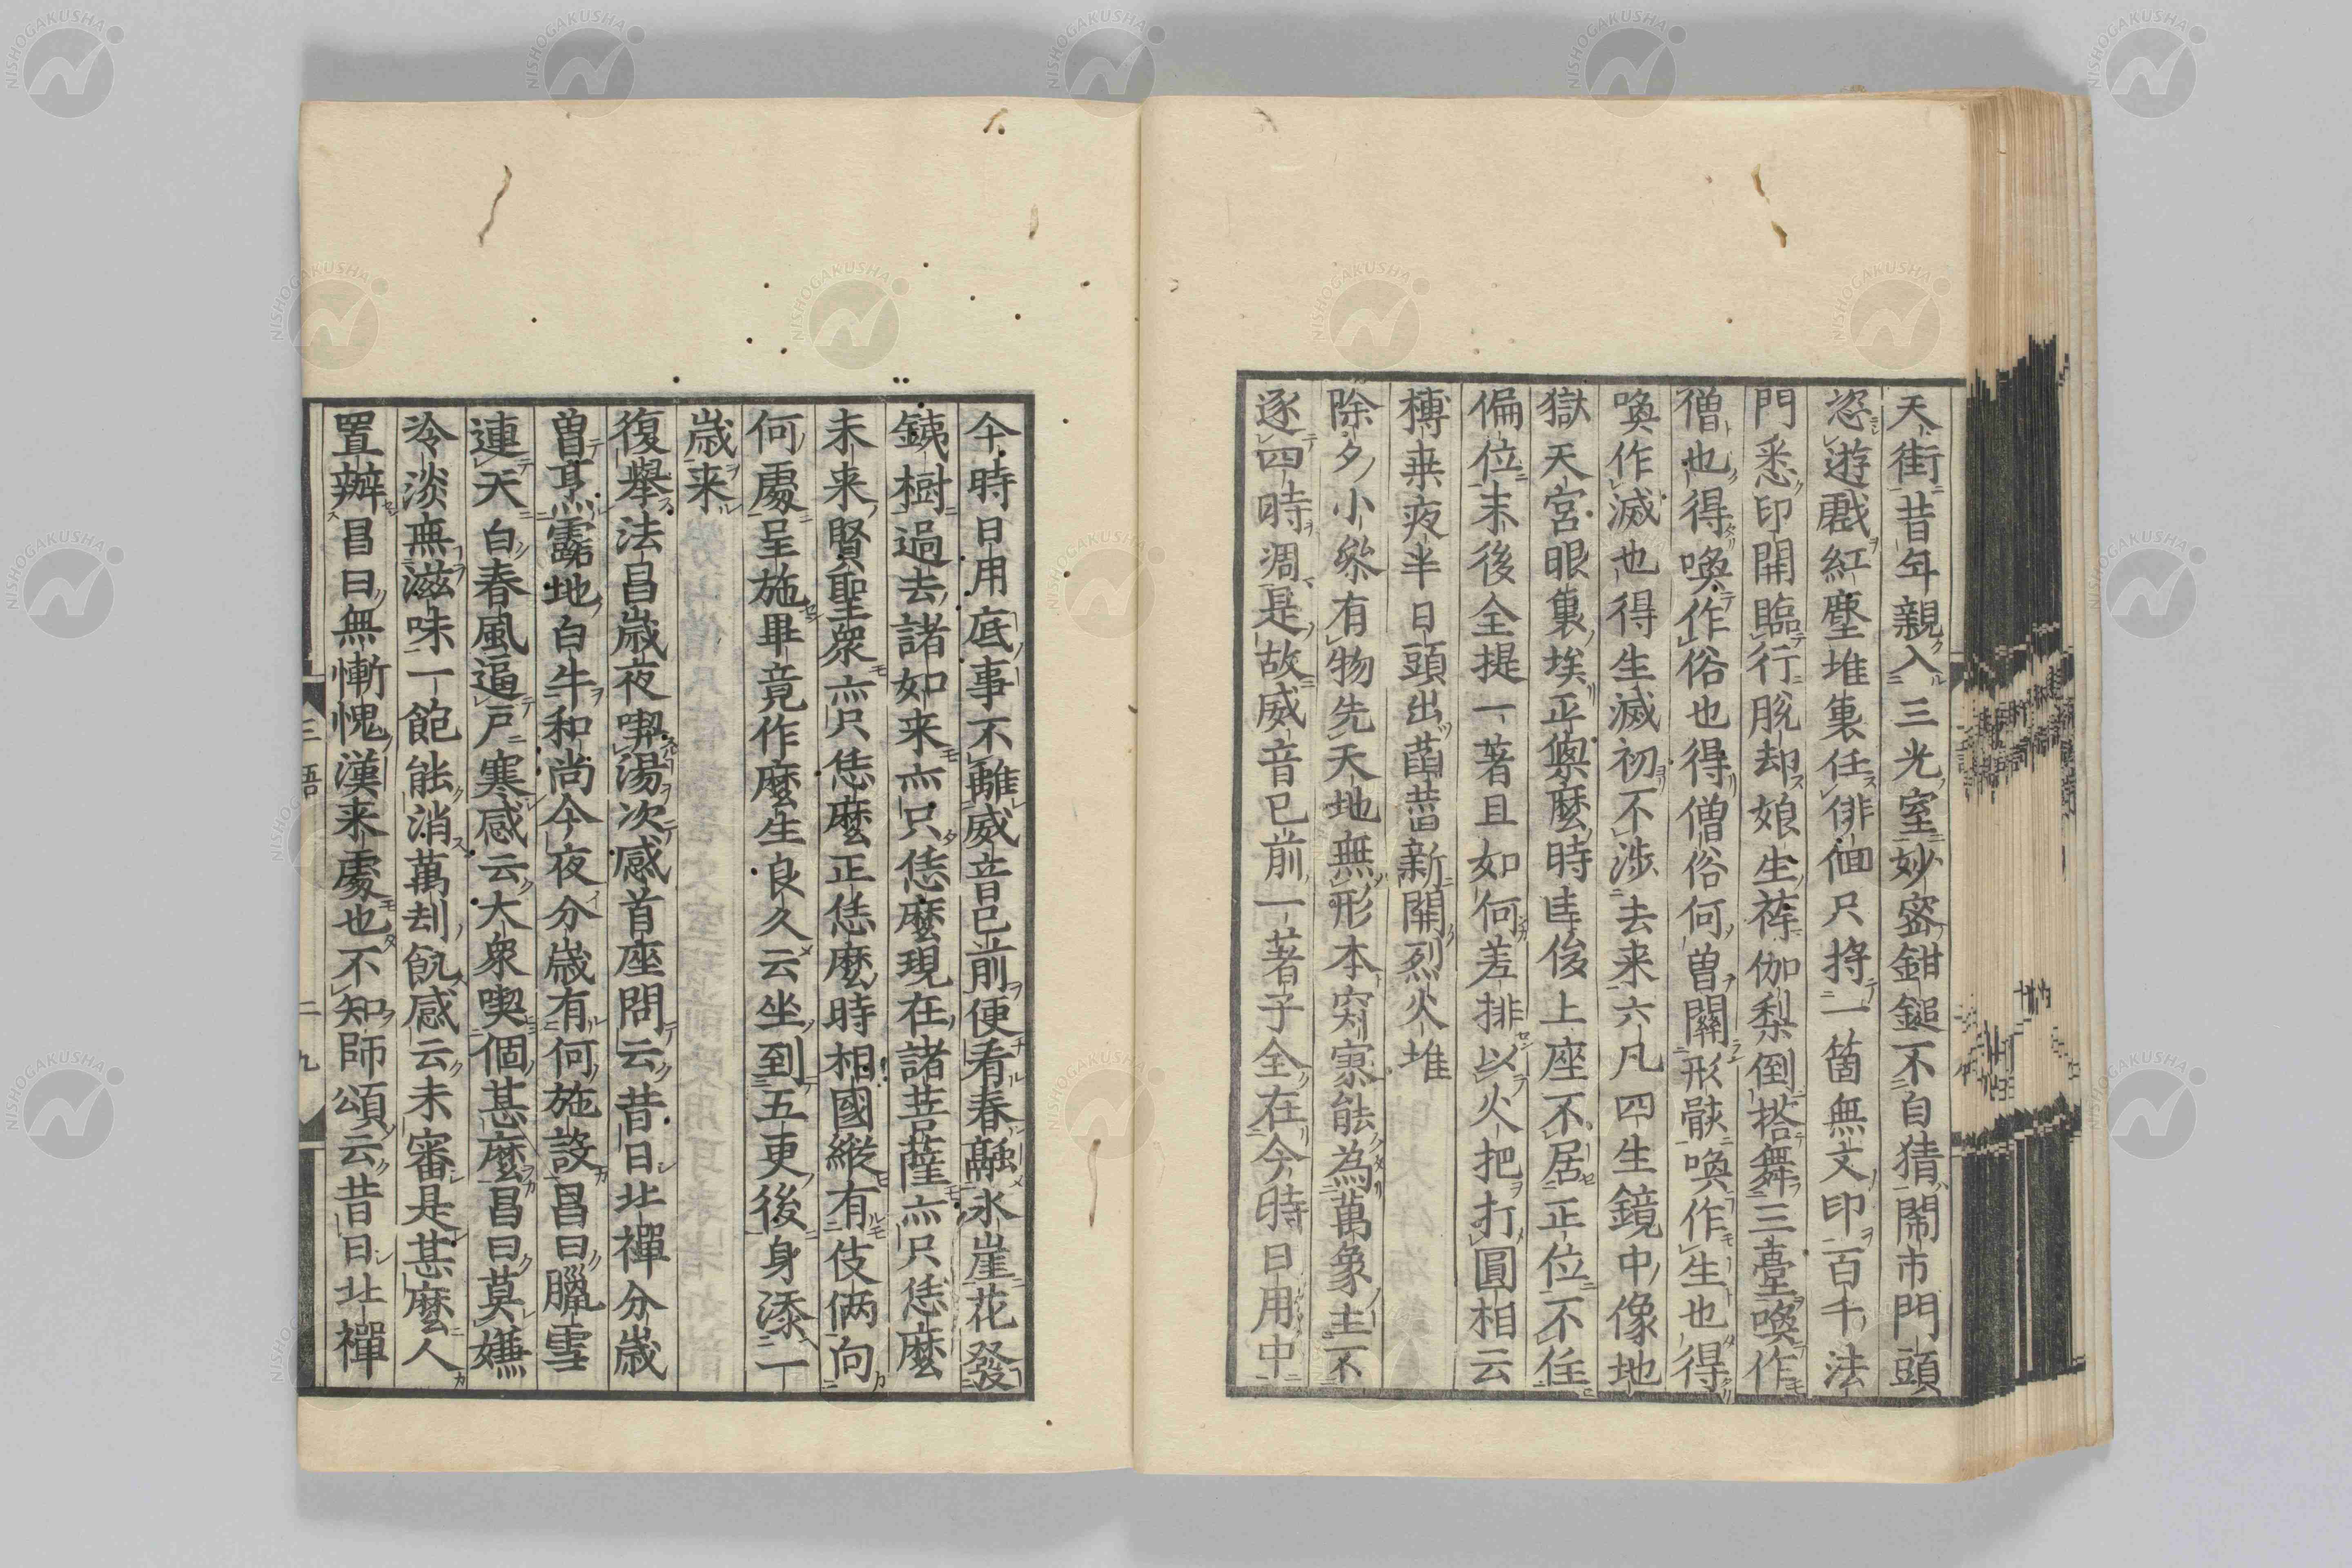 天街昔年親入三光室妙密鉗鎚不自猜閙市門頭
恣遊戲紅塵堆裏任俳佪只将一箇無文印百千法
門悉印開臨行脱却娘生袴伽梨倒搭舞三臺喚作
僧也得喚作俗也得僧俗何曽關形骸喚作生也得
喚作滅也得生滅初不渉去来六凡四生鏡中像地
獄天宮眼裏埃正與麼時
俊上座不居正位不住
偏位末後全提一著且如何差排以火把打圓相云
榑桒夜半日頭出菡萏新開烈火堆
除夕小参有物先天地無形本寂寥能為萬象主不
逐四時凋是故威音已前一著子全在今時日用中
今時日用底事不離威音已前便看春融氷崖花發
鉄樹過去諸如来亦只恁麼現在諸菩薩亦只恁麼
未来賢聖衆亦只恁麼正恁麼時相國縦有伎倆向
何處呈施畢竟作麼生良久云坐到五更後身添一
歳来
復舉法昌歳夜喫湯次感首座問云昔日北禪分歳
曽烹露地白牛和尚今夜分歳有何施設昌曰臘雪
連天白春風逼戸寒感云大衆喫個甚麼昌曰莫嫌
冷淡無滋味一飽能消萬刧飢感云未審是甚麼人
置辦昌曰無慚愧漢来處也不知師頌云昔日北禪
三 語
二九
NISHOGAKUSHA